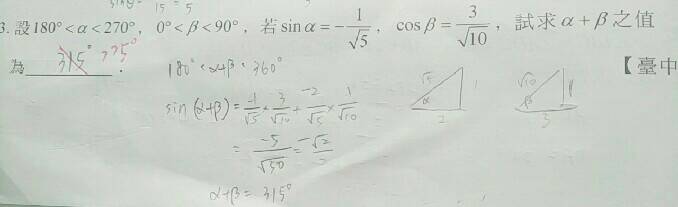 sinθ= 15 = 5
3. 設180°<α<270°，0°<β<90°，若 sin α = -1/√5，cos β = 3/√10，試求 α + β 之值
為 315° 225° . 【臺中
180° < α+β < 360°
sin (α+β) = -1/√5 × 3/√10 + -2/√5 × 1/√10
= -5/√50 = -√2/2
α+β = 315°
√5 1 α 2
√10 1 β 3